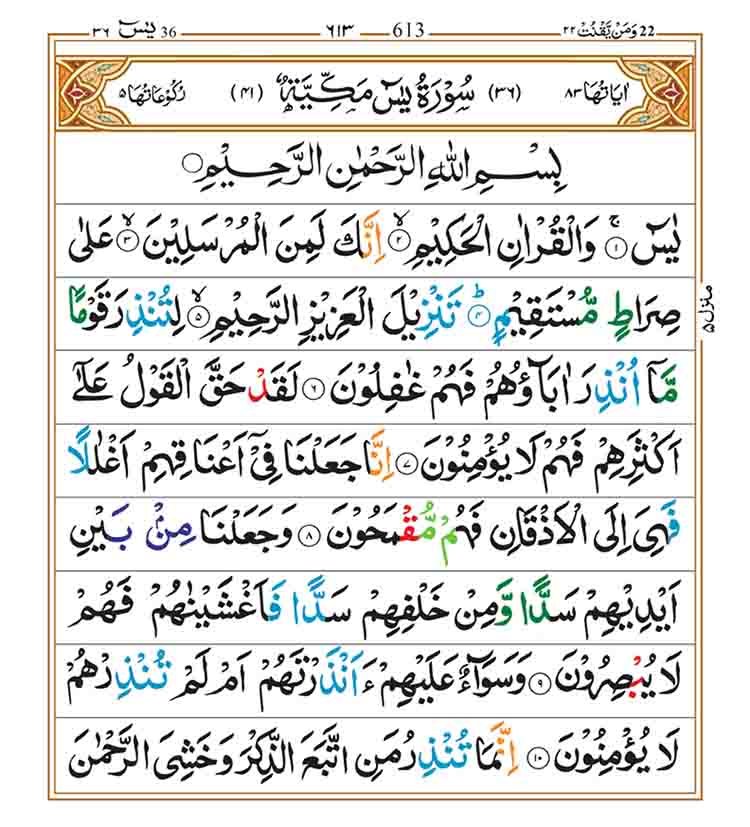 ٢٢ وَمَنْ يَّقْنُتْ 22 613 ٦١٣ 36 يٰسٓ ٣٦
اٰيَاتُهَا ٨٣ (٣٦) سُوْرَةُ يٰسٓ مَكِّيَّةٌ (٤١) رُكُوْعَاتُهَا ٥
بِسْمِ اللّٰهِ الرَّحْمٰنِ الرَّحِيْمِ
يٰسٓ ۚ ﴿١﴾ وَالْقُرْاٰنِ الْحَكِيْمِ ۙ ﴿٢﴾ اِنَّكَ لَمِنَ الْمُرْسَلِيْنَ ۙ ﴿٣﴾ عَلٰى
صِرَاطٍ مُّسْتَقِيْمٍ ؕ ﴿٤﴾ تَنْزِيْلَ الْعَزِيْزِ الرَّحِيْمِ ۙ ﴿٥﴾ لِتُنْذِرَ قَوْمًا
منزل ٥
مَّاۤ اُنْذِرَ اٰبَآؤُهُمْ فَهُمْ غٰفِلُوْنَ ﴿٦﴾ لَقَدْ حَقَّ الْقَوْلُ عَلٰٓى
اَكْثَرِهِمْ فَهُمْ لَا يُؤْمِنُوْنَ ﴿٧﴾ اِنَّا جَعَلْنَا فِيْۤ اَعْنَاقِهِمْ اَغْلٰلًا
فَهِيَ اِلَى الْاَذْقَانِ فَهُمْ مُّقْمَحُوْنَ ﴿٨﴾ وَجَعَلْنَا مِنْۢ بَيْنِ
اَيْدِيْهِمْ سَدًّا وَّمِنْ خَلْفِهِمْ سَدًّا فَاَغْشَيْنٰهُمْ فَهُمْ
لَا يُبْصِرُوْنَ ﴿٩﴾ وَسَوَآءٌ عَلَيْهِمْ ءَاَنْذَرْتَهُمْ اَمْ لَمْ تُنْذِرْهُمْ
لَا يُؤْمِنُوْنَ ﴿١٠﴾ اِنَّمَا تُنْذِرُ مَنِ اتَّبَعَ الذِّكْرَ وَخَشِيَ الرَّحْمٰنَ